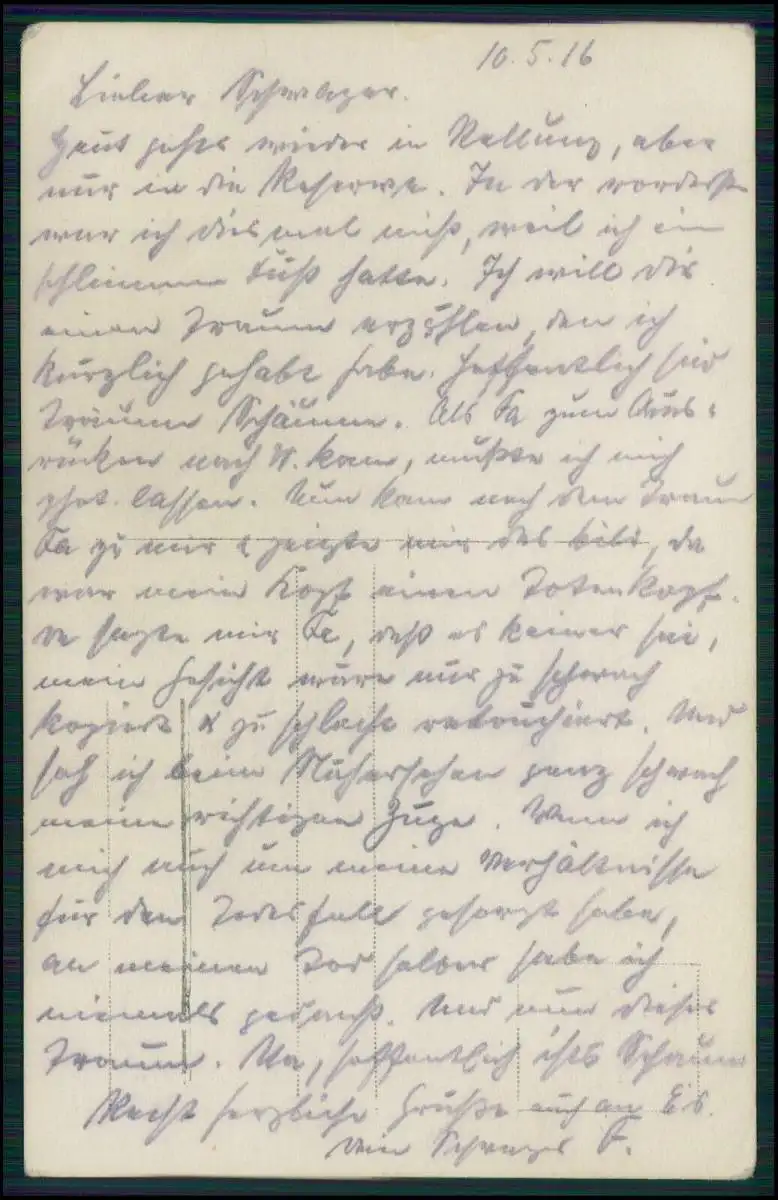 10.5.16
Lieber Schwager.
Heut gehts wieder in Stellung, aber
nur in die Reserve. In der vordersten
war ich diesmal nicht, weil ich ein
schlimmen Fuß hatte. Ich will Dir
einen Traum erzählen, den ich
kürzlich gehabt habe. Hoffentlich sind
Träume Schäume. Als Fa zum Aus-
rücken nach W. kam, mußte ich mich
phot. lassen. Nun kam nach dem Traum
Fa zu mir & zeigte mir das Bild, da
war mein Kopf einen Totenkopf.
Da sagte mir Fa, daß es keiner sei,
mein Gesicht wäre nur zu schwach
kopiert & zu schlecht retouchiert. Und
sah ich beim Nähersehen ganz schwach
meine richtigen Züge. Wenn ich
mich auch um meine Verhältnisse
für den Todesfall gesorgt habe,
an meinen Tod selber habe ich
niemals gedacht. Und nun dieser
Traum. Na, hoffentlich ists Schaum
Recht herzliche Grüße auch an
Dein Schwager F.